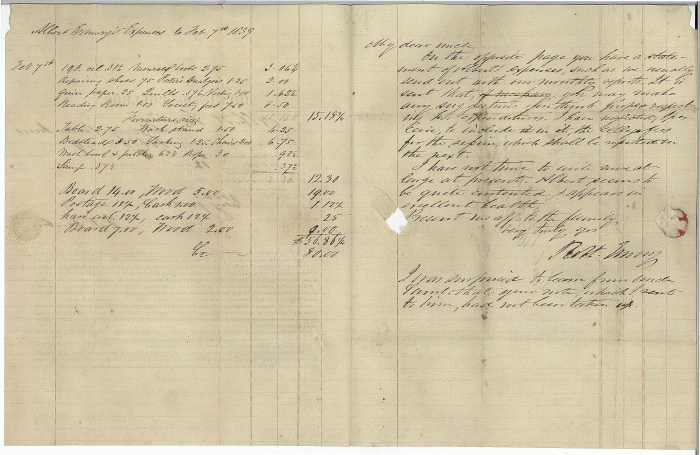 Albert Emory's Expenses to Feb. 7th 1839
Feb 7th 1 gl. oil 31½ Numeral books 2.75 3.06½
Repairing shoes 75 Analysis 1.25 2.00
Quire paper 25 Quills 37½ 1.00 1.62½
Reading Room 1.00 Society fees 7.50 8.50
15.18¾
Furniture
Table 2.75 Wash stand 1.50 4.25
Bedstead 3.50 Packing 1.25 Chairs 2.00 6.75
Wash bowl & pitcher 62½ Rope 30 .92½
Lamp .37½ .37½
12.30
Board 14.00, Wood 5.00 19.00
Postage 12½, Cash 1.00 1.12½
hair cut. 12½, cash 12½ 25
Board 7.00, Wood 2.00 9.00
$56.86¼
Cr. 80.00
My dear uncle,
On the opposite page you have a state-
ment of Albert's expenses, such as we usually
send out with our monthly report. It is
sent that you may make
any suggestions you think proper respect-
ing his expenditures. I have neglected, you
will see, to include in it, the College fees
for the session, which shall be reported in
the next.
I have not time to write more at
large at present. Albert seems to
be quite contented & appears in
excellent health.
Present me aff. to the family.
Very truly yrs
Robt. Emory
I was surprised to learn from uncle
that your note, which I sent
to him, had not been taken up.